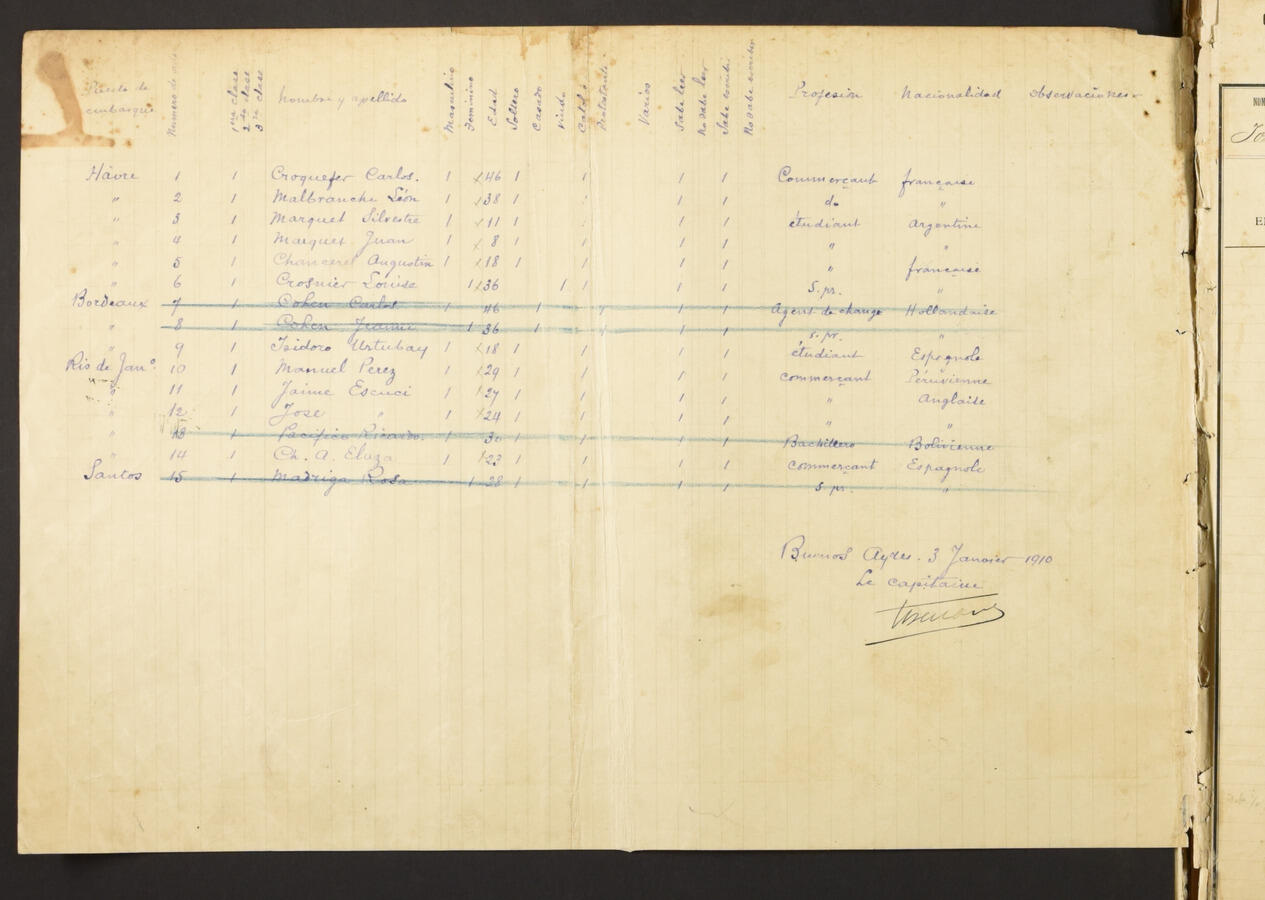 Puerto de embarque Numero de 1ra clase 2da clase 3ra clase Nombre y apellido Masculino Feminino Edad Soltero Casado Viudo Catol. Protestante Varios Sabe leer No sabe leer Sabe escribir No sabe escribir Profesión Nacionalidad Observaciones
Hâvre 1 1 Croquefer Carlos. 1 46 1 1 1 1 Commerçant française
" 2 1 Malbranche Léon 1 38 1 1 1 1 do "
" 3 1 Marquet Silvestre 1 11 1 1 1 1 étudiant Argentine
" 4 1 Marquet Juan 1 8 1 1 1 1 " "
" 5 1 Chancerel Augustin 1 18 1 1 1 1 " française
" 6 1 Crosnier Louise 1 36 1 1 1 1 S. pr. "
Bordeaux 7 1 Cohen Carlos 1 46 1 1 1 1 Agent de change Hollandaise
" 8 1 Cohen Jeanne 1 36 1 1 1 1 S. pr. "
" 9 1 Isidoro Urtubay 1 18 1 1 1 1 étudiant Espagnole
Rio de Jano. 10 1 Manuel Perez 1 29 1 1 1 1 commerçant Péruvienne
" 11 1 Jaime Escuci 1 27 1 1 1 1 " Anglaise
" 12 1 Jose " 1 24 1 1 1 1 " "
" 13 1 Pacifico Ricardo. 1 30 1 1 1 1 Bachillero Bolivienne
" 14 1 Ch. A. Eluza 1 23 1 1 1 1 commerçant Espagnole
Santos 15 1 Madriga Rosa 1 28 1 1 1 1 S. pr. "
Buenos Ayres. 3 Janvier 1910
Le capitaine